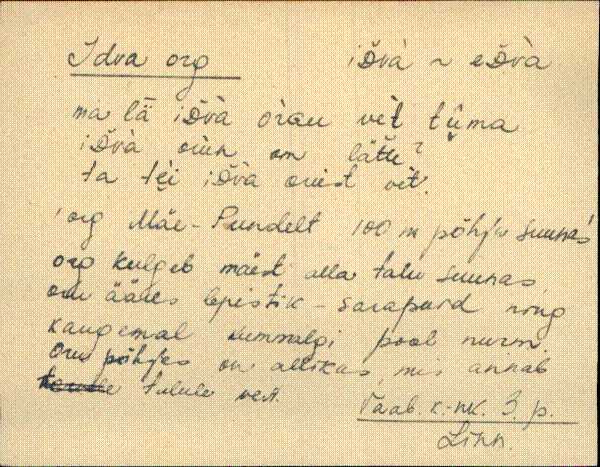 Idva org iD̆và ~ eD̆và
ma lä iD̆và òrgu vèt tūma
iD̆và orun om lätte?
ta tei iD̆và orust vèt.
'org Mäe-Pundelt 100 m põhja suunas'
org kulgeb mäest alla talu suunas
oru ääres lepistik - sarapuid ning
kaugemal kummalgi pool nurm.
Oru põhjas on allikas, mis annab
talule vett.
Vaab. k.-nk. 3. p.
Linn.